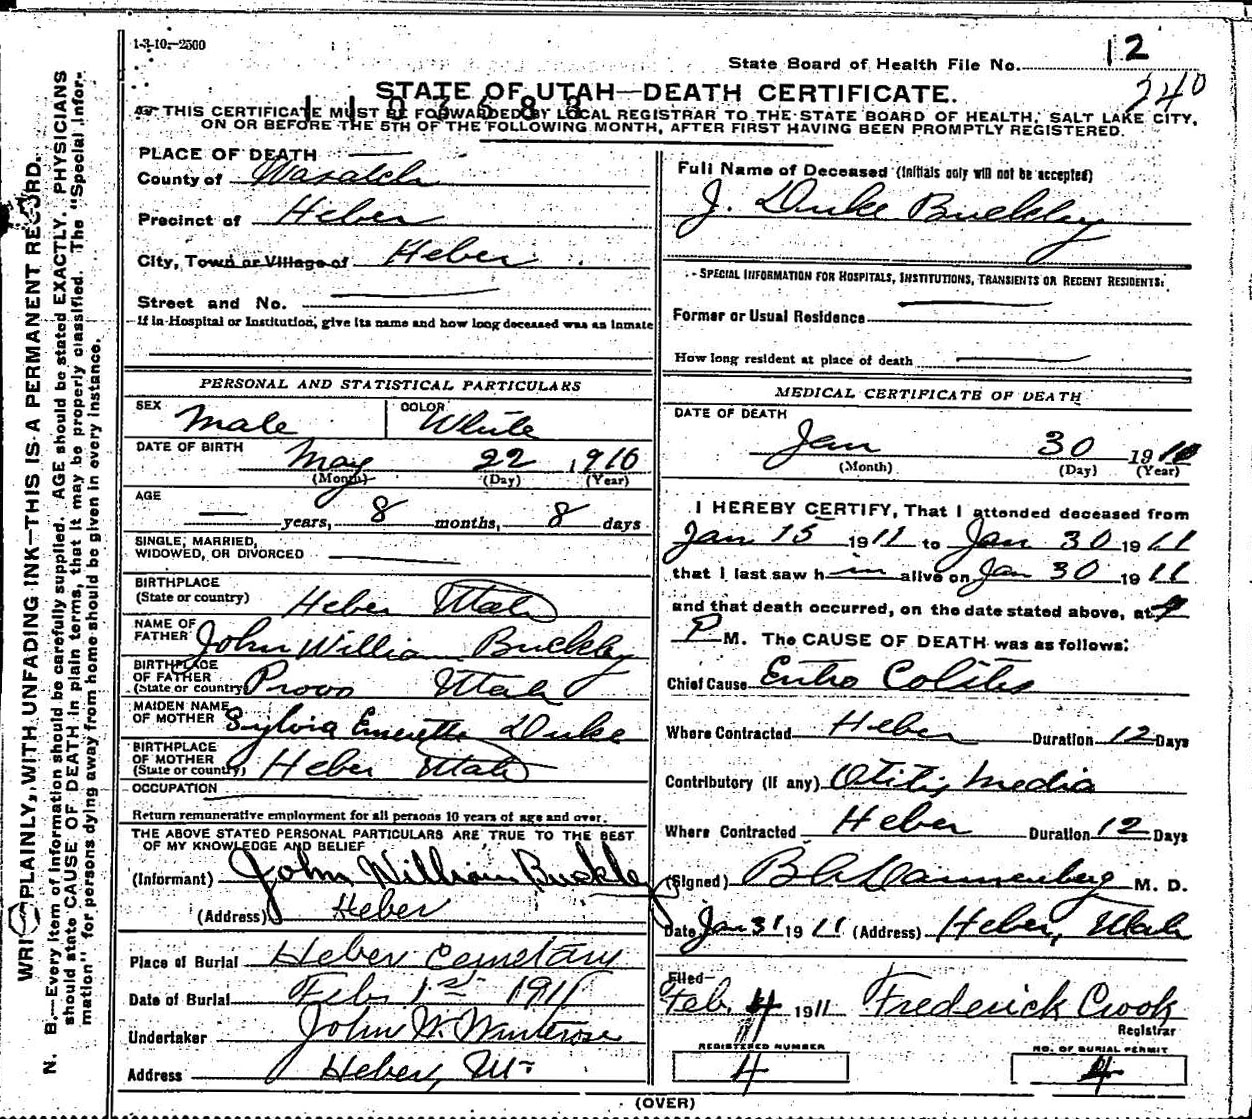 1-3-10.-2500
State Board of Health File No. 12
240
STATE OF UTAH—DEATH CERTIFICATE.
1103683
THIS CERTIFICATE MUST BE FORWARDED BY LOCAL REGISTRAR TO THE STATE BOARD OF HEALTH, SALT LAKE CITY,
ON OR BEFORE THE 5TH OF THE FOLLOWING MONTH, AFTER FIRST HAVING BEEN PROMPTLY REGISTERED.
WRITE PLAINLY, WITH UNFADING INK—THIS IS A PERMANENT RECORD.
N. B.—Every item of information should be carefully supplied. AGE should be stated EXACTLY. PHYSICIANS
should state CAUSE OF DEATH in plain terms, that it may be properly classified. The "Special Infor-
mation" for persons dying away from home should be given in every instance.
PLACE OF DEATH
County of Wasatch
Precinct of Heber
City, Town or Village of Heber
Street and No.
If in Hospital or Institution, give its name and how long deceased was an inmate
PERSONAL AND STATISTICAL PARTICULARS
SEX Male COLOR White
DATE OF BIRTH May 22 1910
(Month) (Day) (Year)
AGE
— years, 8 months, 8 days
SINGLE, MARRIED,
WIDOWED, OR DIVORCED
BIRTHPLACE
(State or country) Heber Utah
NAME OF
FATHER John William Buckley
BIRTHPLACE
OF FATHER
(State or country) Provo Utah
MAIDEN NAME
OF MOTHER Sylvia Emeretta Duke
BIRTHPLACE
OF MOTHER
(State or country) Heber Utah
OCCUPATION
Return remunerative employment for all persons 10 years of age and over.
THE ABOVE STATED PERSONAL PARTICULARS ARE TRUE TO THE BEST
OF MY KNOWLEDGE AND BELIEF
(Informant) John William Buckley
(Address) Heber
Place of Burial Heber Cemetary
Date of Burial Feb 1st 1911
Undertaker John W. Winterose
Address Heber, Ut.
Full Name of Deceased (Initials only will not be accepted)
J. Duke Buckley
SPECIAL INFORMATION FOR HOSPITALS, INSTITUTIONS, TRANSIENTS OR RECENT RESIDENTS:
Former or Usual Residence
How long resident at place of death
MEDICAL CERTIFICATE OF DEATH
DATE OF DEATH
Jan 30 19
(Month) (Day) (Year)
I HEREBY CERTIFY, That I attended deceased from
Jan 15 1911 to Jan 30 1911
that I last saw him alive on Jan 30 1911
and that death occurred, on the date stated above, at 9
P M. The CAUSE OF DEATH was as follows:
Chief Cause Entro Colites
Where Contracted Heber Duration 12 Days
Contributory (If any) Otitis Media
Where Contracted Heber Duration 12 Days
(Signed) Dannenberg M. D.
Date Jan 31 1911 (Address) Heber, Utah
Filed
Feb. 4 1911 Frederick Crook
Registrar
REGISTERED NUMBER
4
NO. OF BURIAL PERMIT
4
(OVER)